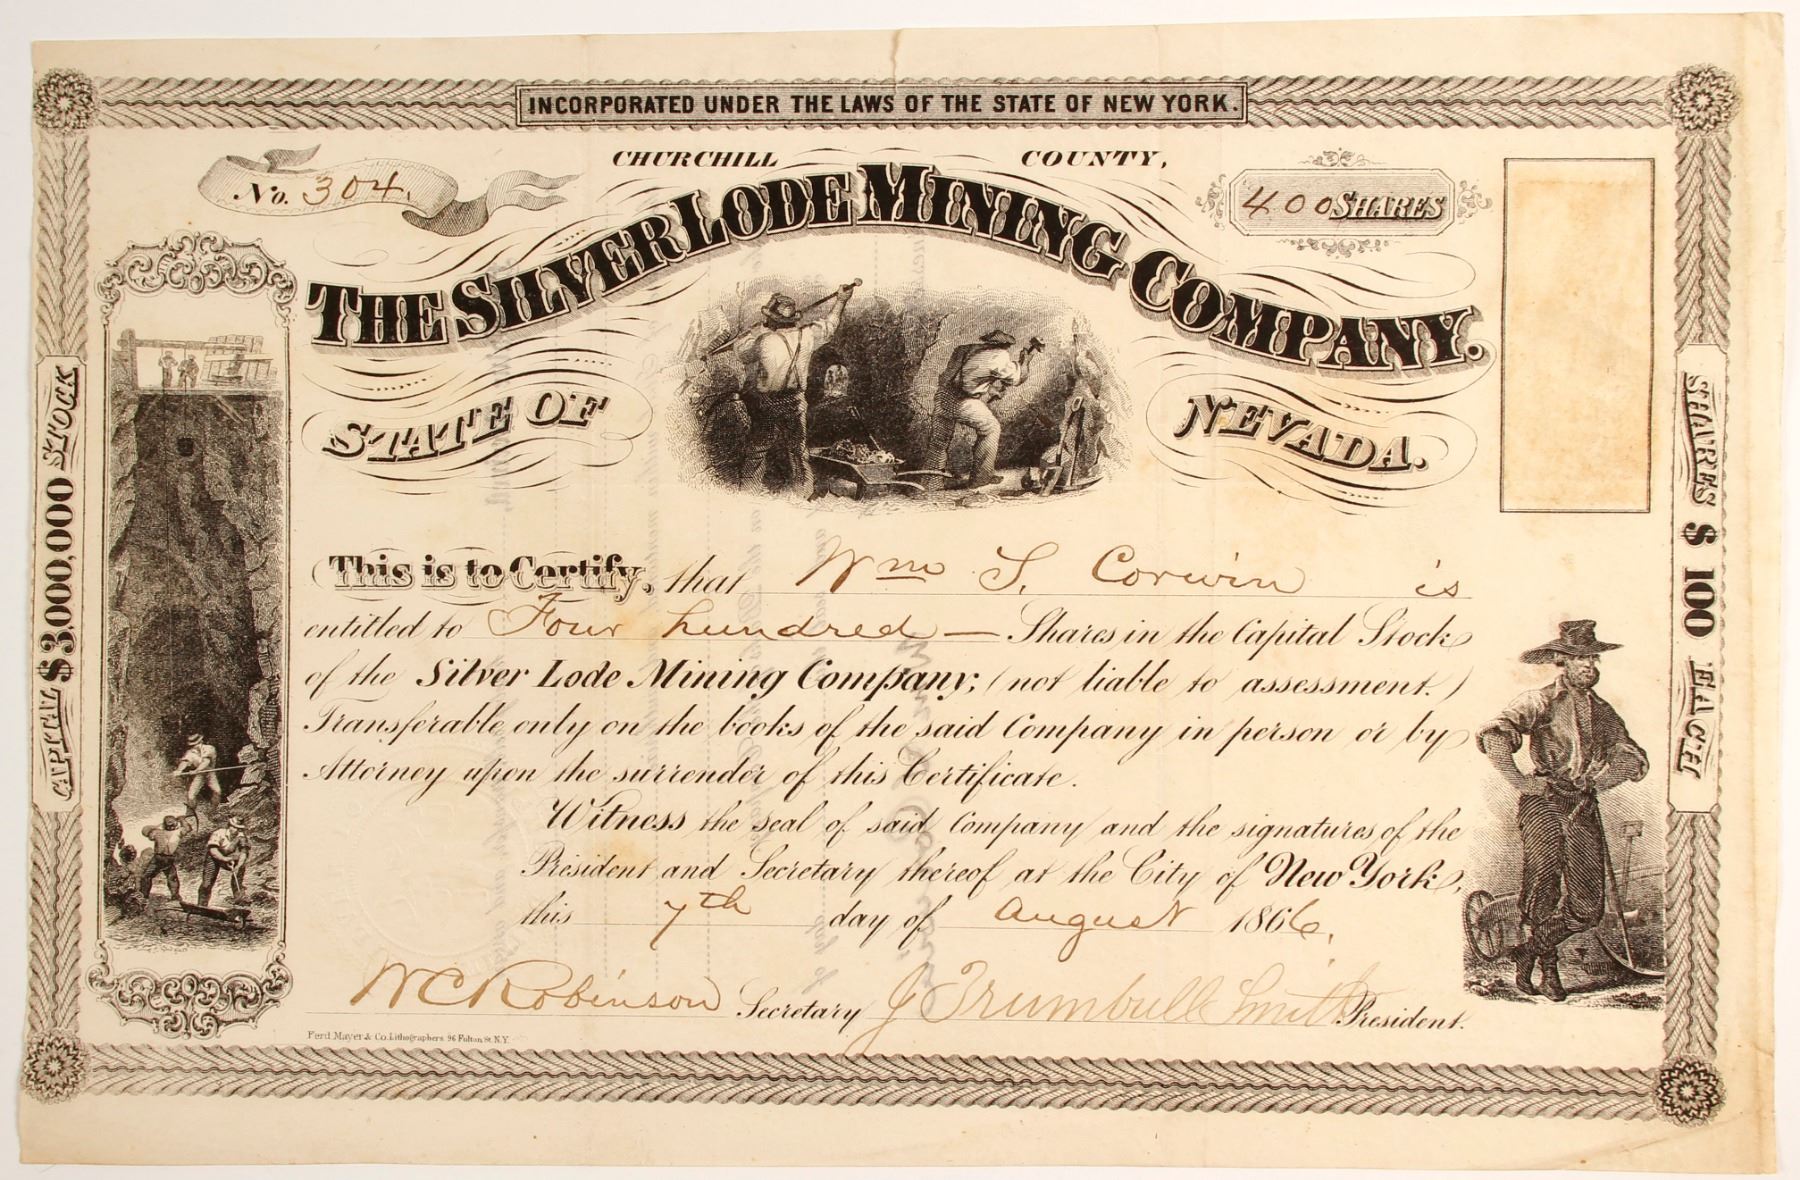 INCORPORATED UNDER THE LAWS OF THE STATE OF NEW YORK.
CHURCHILL COUNTY,
No. 304.
400 SHARES
THE SILVER LODE MINING COMPANY.
STATE OF NEVADA.
CAPITAL $3,000,000 STOCK
SHARES $100 EACH
This is to Certify, that Wm S. Corwin is
entitled to Four hundred — Shares in the Capital Stock
of the Silver Lode Mining Company; (not liable to assessment.)
Transferable only on the books of the said Company in person or by
Attorney upon the surrender of this Certificate.
Witness the seal of said Company and the signatures of the
President and Secretary thereof at the City of New York,
this 7th day of August 1866.
W C Robinson Secretary J Trumbull Smith President.
Ferd. Mayer & Co. Lithographers. 96 Fulton St. N.Y.